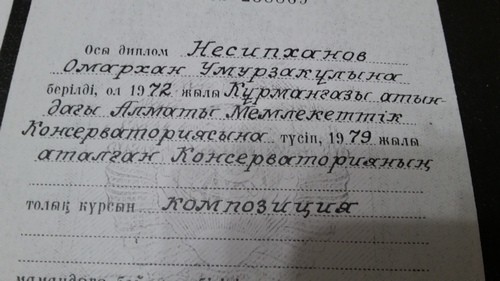 Осы диплом Несипханов
Омархан Умурзақұлына
берілді, ол 1972 жылы Құрманғазы атын-
дағы Алматы Мемлекеттік
Консерваториясына түсіп, 1979 жылы
аталған Консерваторияның
толық курсын композиция